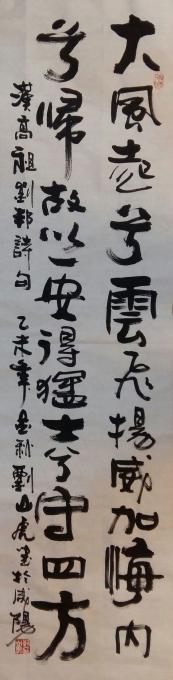 大風起兮雲飛揚威加海内
兮歸故鄉安得猛士兮守四方
漢高祖劉邦詩句 乙未年秋劉山虎書於咸陽